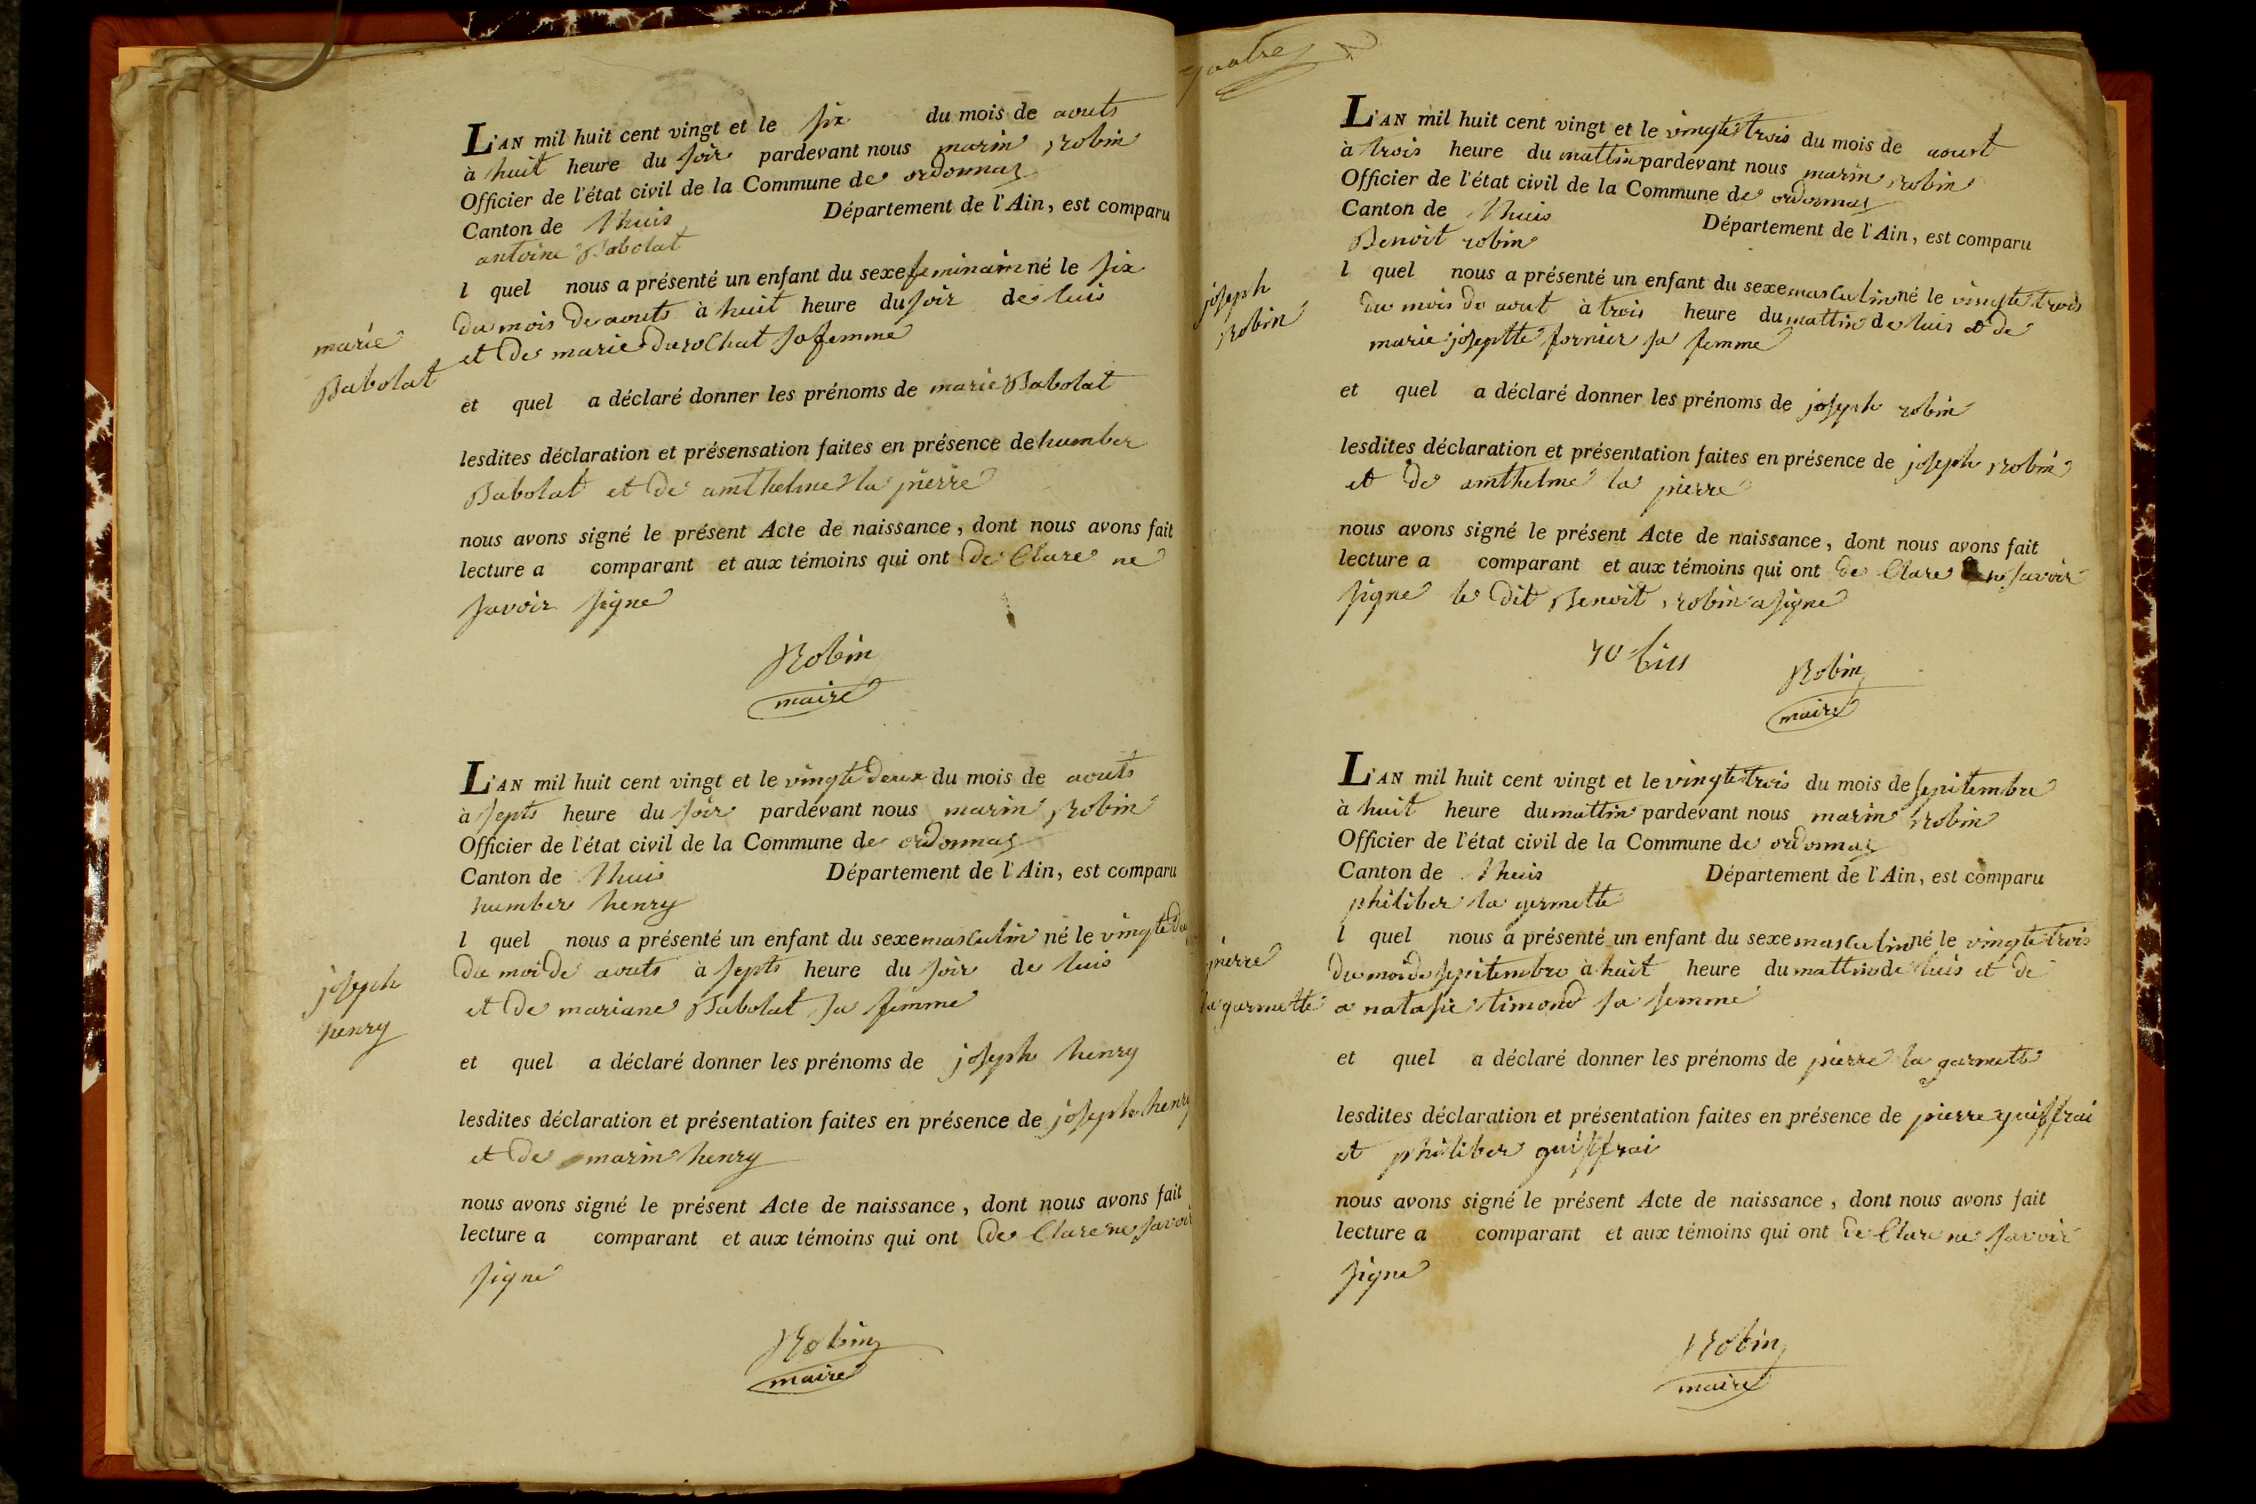 L'AN mil huit cent vingt et le six du mois de aouts
à huit heure du soir pardevant nous marin robin
Officier de l'état civil de la Commune de ordonnaz
Canton de lhuis Département de l'Ain, est comparu
antoine Babolat
l quel nous a présenté un enfant du sexe feminaim né le six
du mois de aouts à huit heure du soir de luis
et de marie durochat sa femme
marie
Babolat
et quel a déclaré donner les prénoms de marie Babolat
lesdites déclaration et présensation faites en présence de humber
Babolat et de amthelme la pierre
nous avons signé le présent Acte de naissance, dont nous avons fait
lecture a comparant et aux témoins qui ont de Clare ne
savoir signe
Robin
maire
L'AN mil huit cent vingt et le vingte deux du mois de aouts
à septs heure du soir pardevant nous marin robin
Officier de l'état civil de la Commune de ordonnaz
Canton de lhuis Département de l'Ain, est comparu
humber henry
l quel nous a présenté un enfant du sexe masculin né le vingte
du moi de aouts à septs heure du soir de luis
et de mariane Babolat sa femme
joseph
henry
et quel a déclaré donner les prénoms de joseph henry
lesdites déclaration et présentation faites en présence de joseph henry
et de marin henry
nous avons signé le présent Acte de naissance, dont nous avons fait
lecture a comparant et aux témoins qui ont de Clare ne savoir
signe
Robin
maire
quatre
L'AN mil huit cent vingt et le vingte trois du mois de aoust
à trois heure du mattin pardevant nous marin robin
Officier de l'état civil de la Commune de ordonnaz
Canton de lhuis Département de l'Ain, est comparu
Benoit robin
l quel nous a présenté un enfant du sexe masculin né le vingte trois
du mois de aout à trois heure du mattin de luis et de
marie joseptte fornier sa femme
joseph
robin
et quel a déclaré donner les prénoms de joseph robin
lesdites déclaration et présentation faites en présence de joseph robin
et de amthelme la pierre
nous avons signé le présent Acte de naissance, dont nous avons fait
lecture a comparant et aux témoins qui ont de Clare ne savoir
signe le dit Benoit robin a signe
Robin
maire
L'AN mil huit cent vingt et le vingte trois du mois de sepitembre
à huit heure du mattin pardevant nous marin robin
Officier de l'état civil de la Commune de ordonnaz
Canton de lhuis Département de l'Ain, est comparu
philiber la germette
l quel nous a présenté un enfant du sexe masculin né le vingte trois
du moi de sepitembre à huit heure du mattin de luis et de
a natasie timond sa femme
pierre
la garmette
et quel a déclaré donner les prénoms de pierre la garmette
lesdites déclaration et présentation faites en présence de pierre guiffrai
et philiber guiffrai
nous avons signé le présent Acte de naissance, dont nous avons fait
lecture a comparant et aux témoins qui ont de Clare ne savoir
signe
Robin
maire